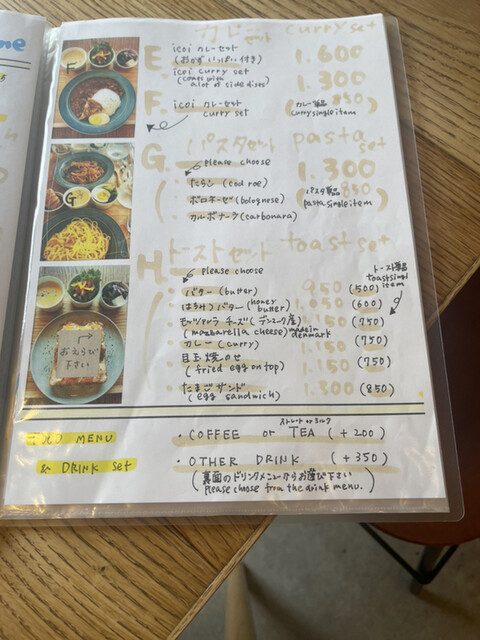 カレーセット curry set
E icoi カレーセット 1.600
(おかずいっぱい付き)
icoi curry set 1.300
(comes with
a lot of side dishes)
F. icoi カレーセット カレー単品 (850)
curry set curry single item
G. パスタセット pasta set
please choose 1.300
たらこ (cod roe) パスタ単品 850
ボロネーゼ (bolognese) pasta single item
カルボナーラ (carbonara)
H. トーストセット toast set
please choose トースト単品
toast single item
バター (butter) 950 (500)
はちみつバター (honey butter) 1.050 (600)
モッツァレラ チーズ (デンマーク産) 1.150 (750)
(mozzarella cheese) made in denmark
カレー (curry) 1.150 (750)
目玉焼のせ 1.150 (750)
(fried egg on top)
たまごサンド 1.300 (850)
(egg sandwich)
F
G
おえらび
下さい
MENU
& DRINK set
ストレート or ミルク
・COFFEE or TEA (+200)
・OTHER DRINK (+350)
(裏面のドリンクメニューからお選び下さい
please choose from the drink menu.)